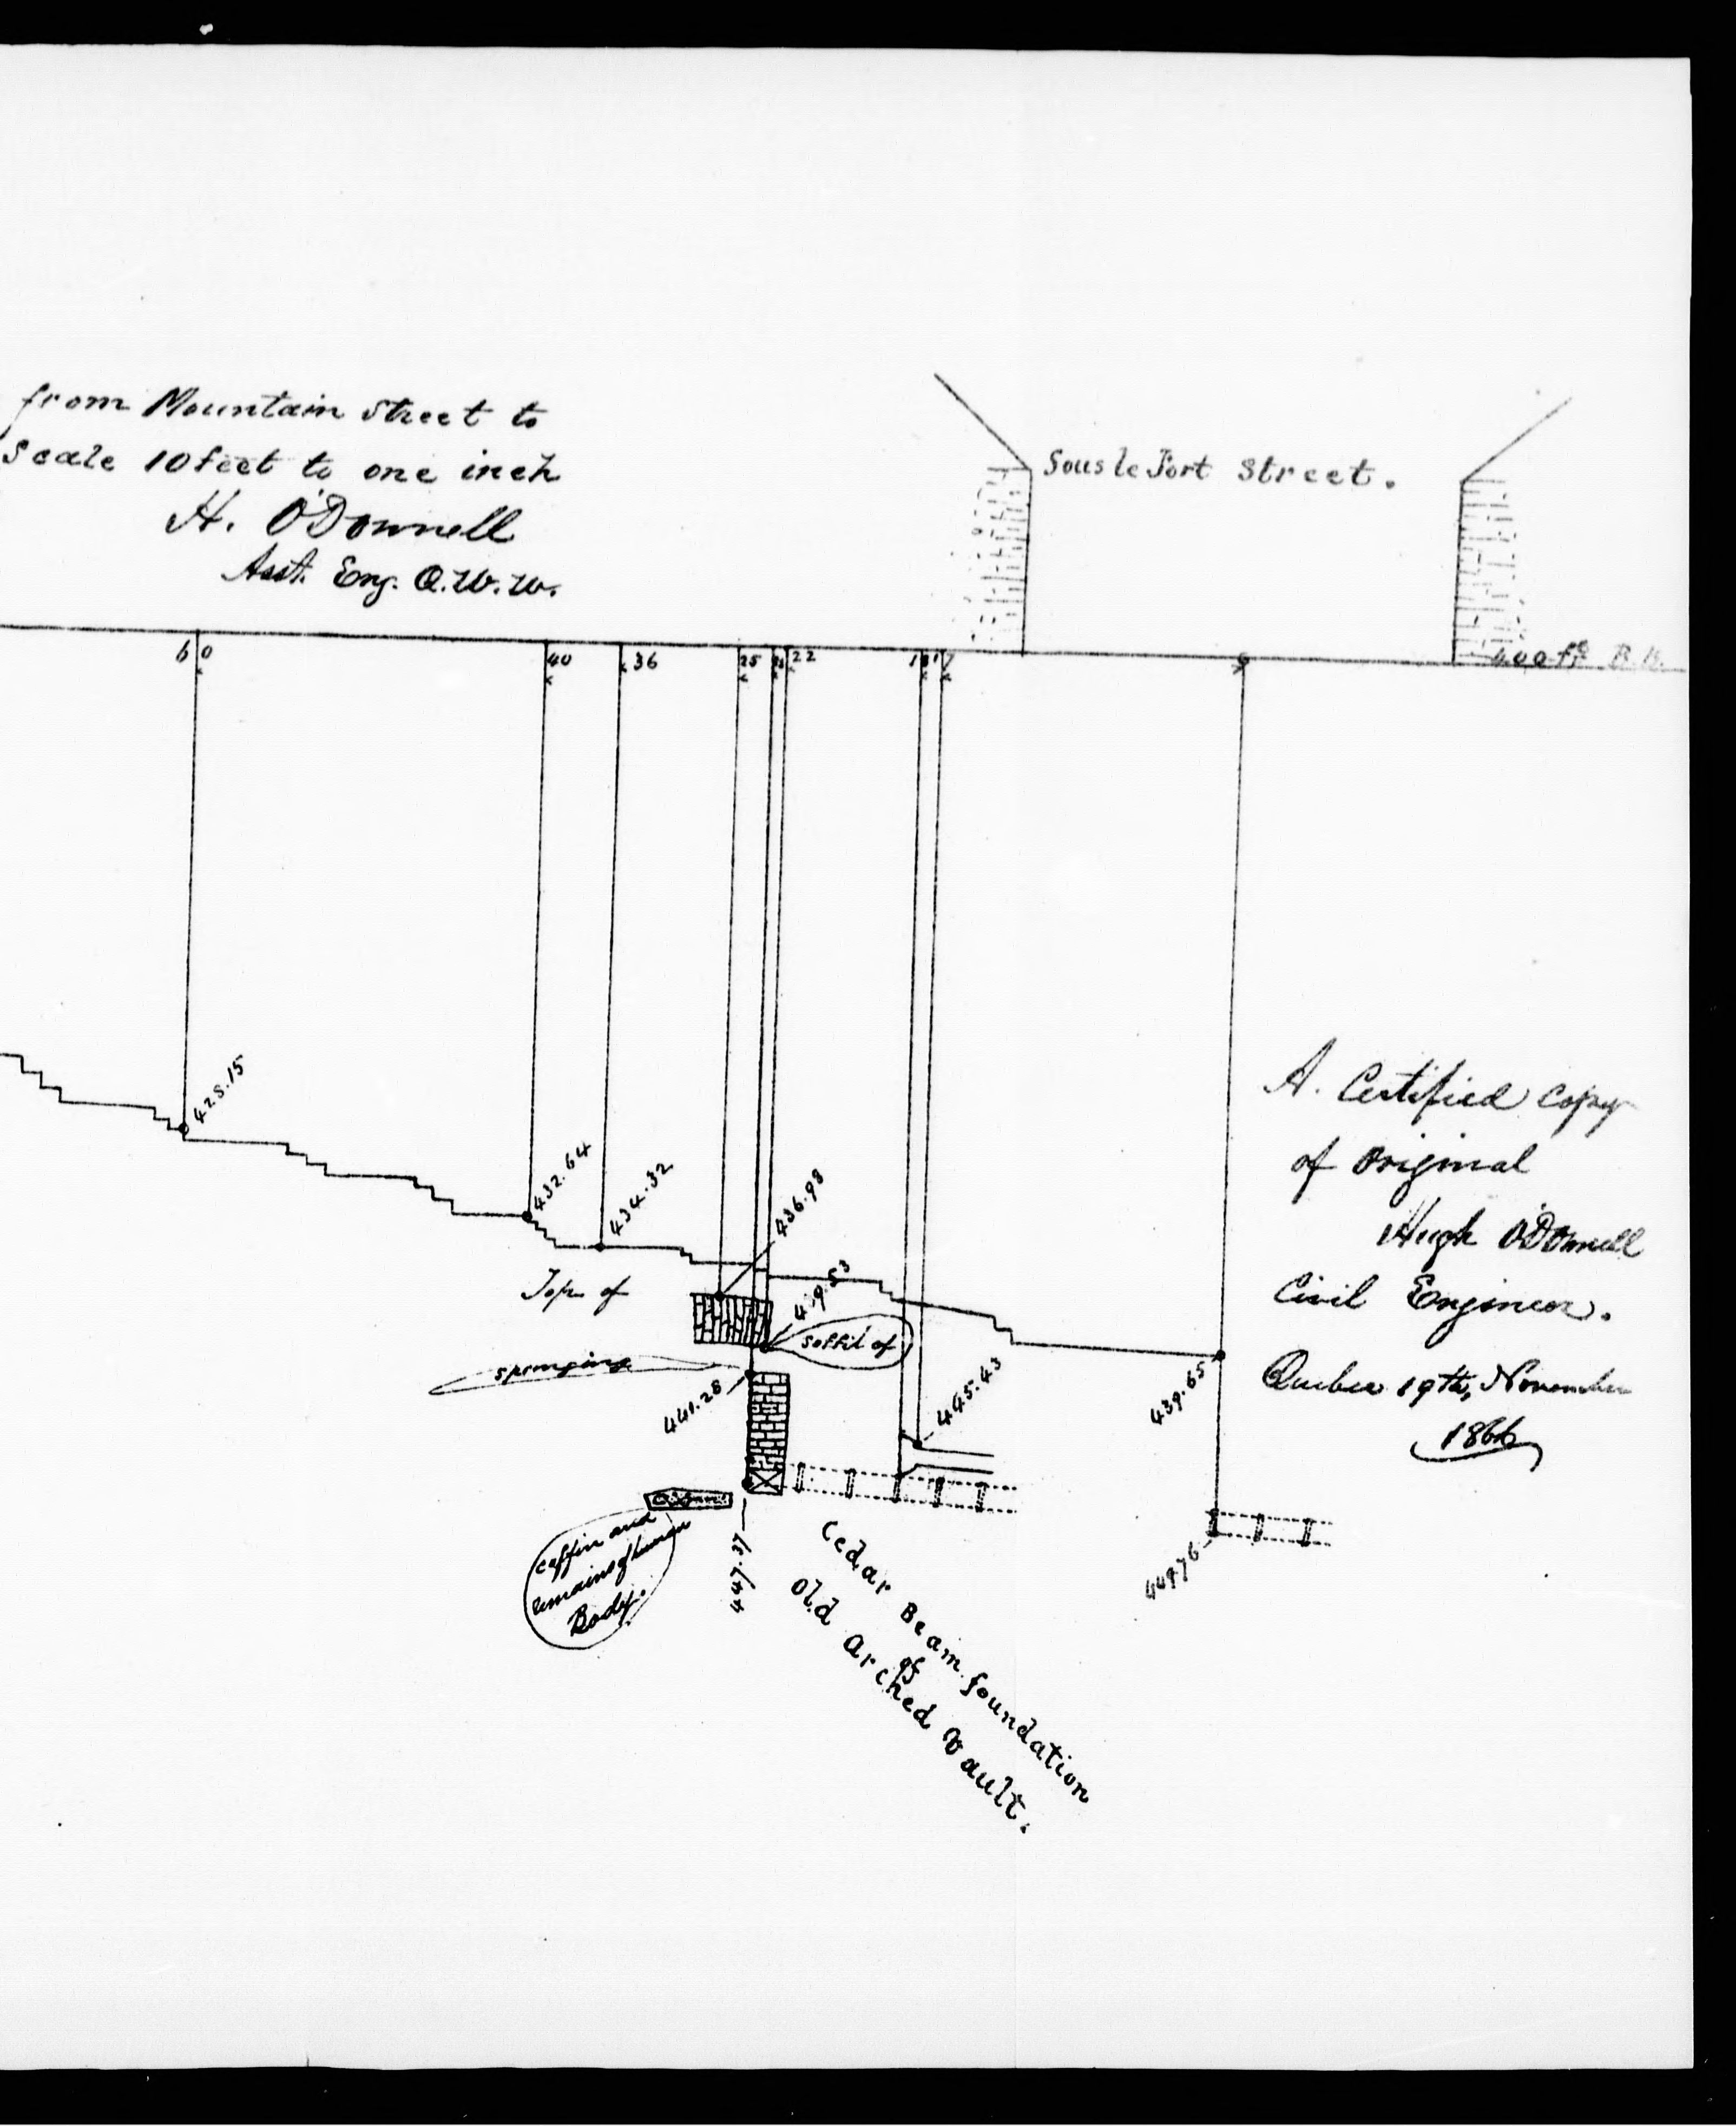 from Mountain Street to
Scale 10 feet to one inch
H. O'Donnell
Asst. Eng. Q.W.W.
Sous le Fort Street.
60
40
36
25
22
17
400 ft
428.15
432.64
434.32
436.98
Top of
439.53
soffit of
springing
441.28
445.43
439.65
A. Certified Copy
of Original
Hugh O'Donnell
Civil Engineer.
Quebec 19th, November
1866
coffin and
remains of human
Body.
447.37
449.76
Cedar Beam foundation
of
Old Arched Vault.